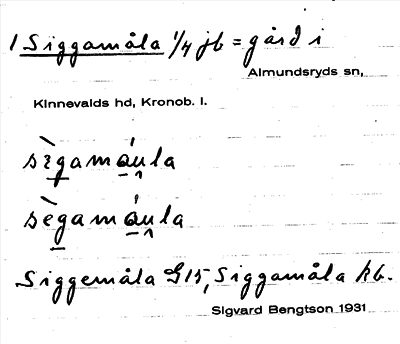 1 Siggamåla 1/4 jb = gård i
Almundsryds sn,
Kinnevalds hd, Kronob. l.
sìgamáula
sègamáula
Siggemåla G15, Siggamåla kb.
Sigvard Bengtson 1931